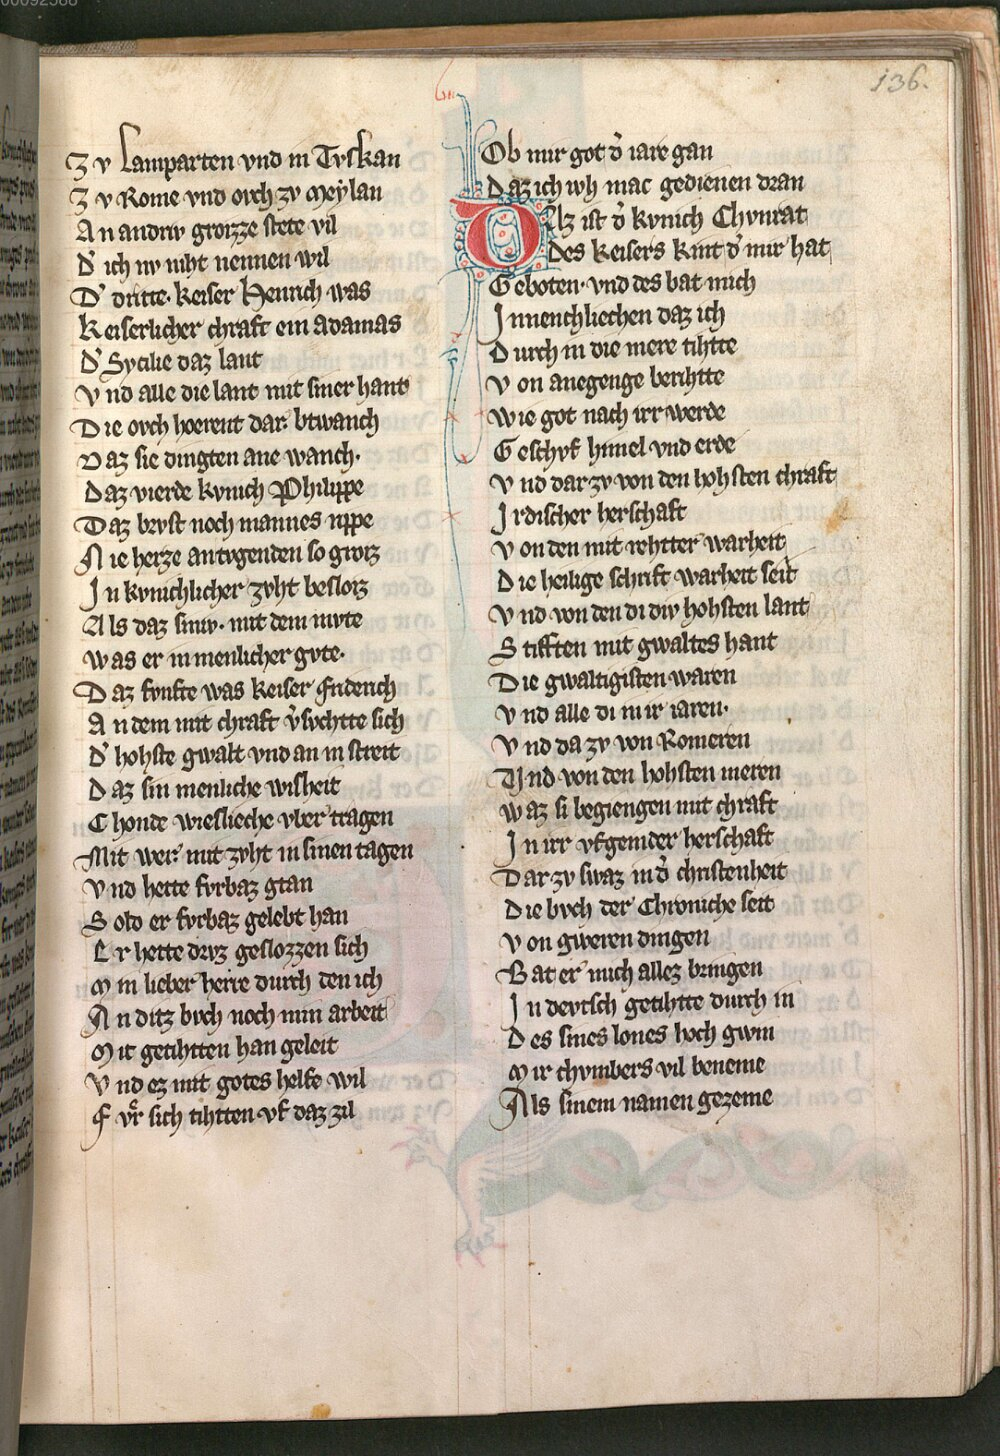 00092588
136.
Zv Lamparten vnd in Tvskan
Zv Rome vnd ovch zv Meylan
An andriv grozze stete vil
D' ich nv niht nennen wil
D' dritte keiser Heinrich was
Keiserlicher chraft ein adamas
D' Sycilie daz lant
Vnd alle die lant mit siner hant
Die ovch hoerent dar btwanch
Daz sie dingten ane wanch.
Daz vierde kvnich Philippe
Daz bevst noch mannes rippe
Nie herze an tvgenden so groz
In kvnichlicher zvht besloz
Als daz siniv. mit dem mvte
Was er in menlicher gvte.
Daz fvnfte was keiser friderich
An dem mit chraft v'svchtte sich
D' hohste gwalt vnd an im streit
Daz sin menliche wisheit
Chonde wiesliche vber tragen
Mit wer mit zvht in sinen tagen
Vnd hette fvrbaz gtan
Sold er fvrbaz gelebt han
Er hette drvz geslozzen sich
Min lieber herre durch den ich
An ditz bvch noch min arbeit
Mit getihtten han geleit
Vnd ez mit gotes helfe wil
Fvr sich tihtten vf daz zil
Ob mir got d' iare gan
Daz ich ivh mac gedienen dran
Daz ist d' kvnich Chvnrat
Des keisers kint d' mir hat
Geboten. vnd des bat mich
Innenchliechen daz ich
Durch in die mere tihtte
Von anegenge berihtte
Wie got nach irr werde
Geschvf himel vnd erde
Vnd dar zv von den hohsten chraft
Irdischer herschaft
Von den mit rehtter warheit
Die heilige schrift warheit seit
Vnd von den di div hohsten lant
Stifften mit gwaltes hant
Die gwaltigisten waren
Vnd alle di in ir iaren.
Vnd da zv von Romeren
Vnd von den hohsten meren
Waz si begiengen mit chraft
In irr vfgender herschaft
Dar zv swaz in d' christenheit
Die bvch der Chroniche seit
Von gweren dingen
Bat er mich allez bringen
In devtsch getihtte durch in
Des sines lones hoch gwin
Mir chvmbers vil beneme
Als sinem namen gezeme